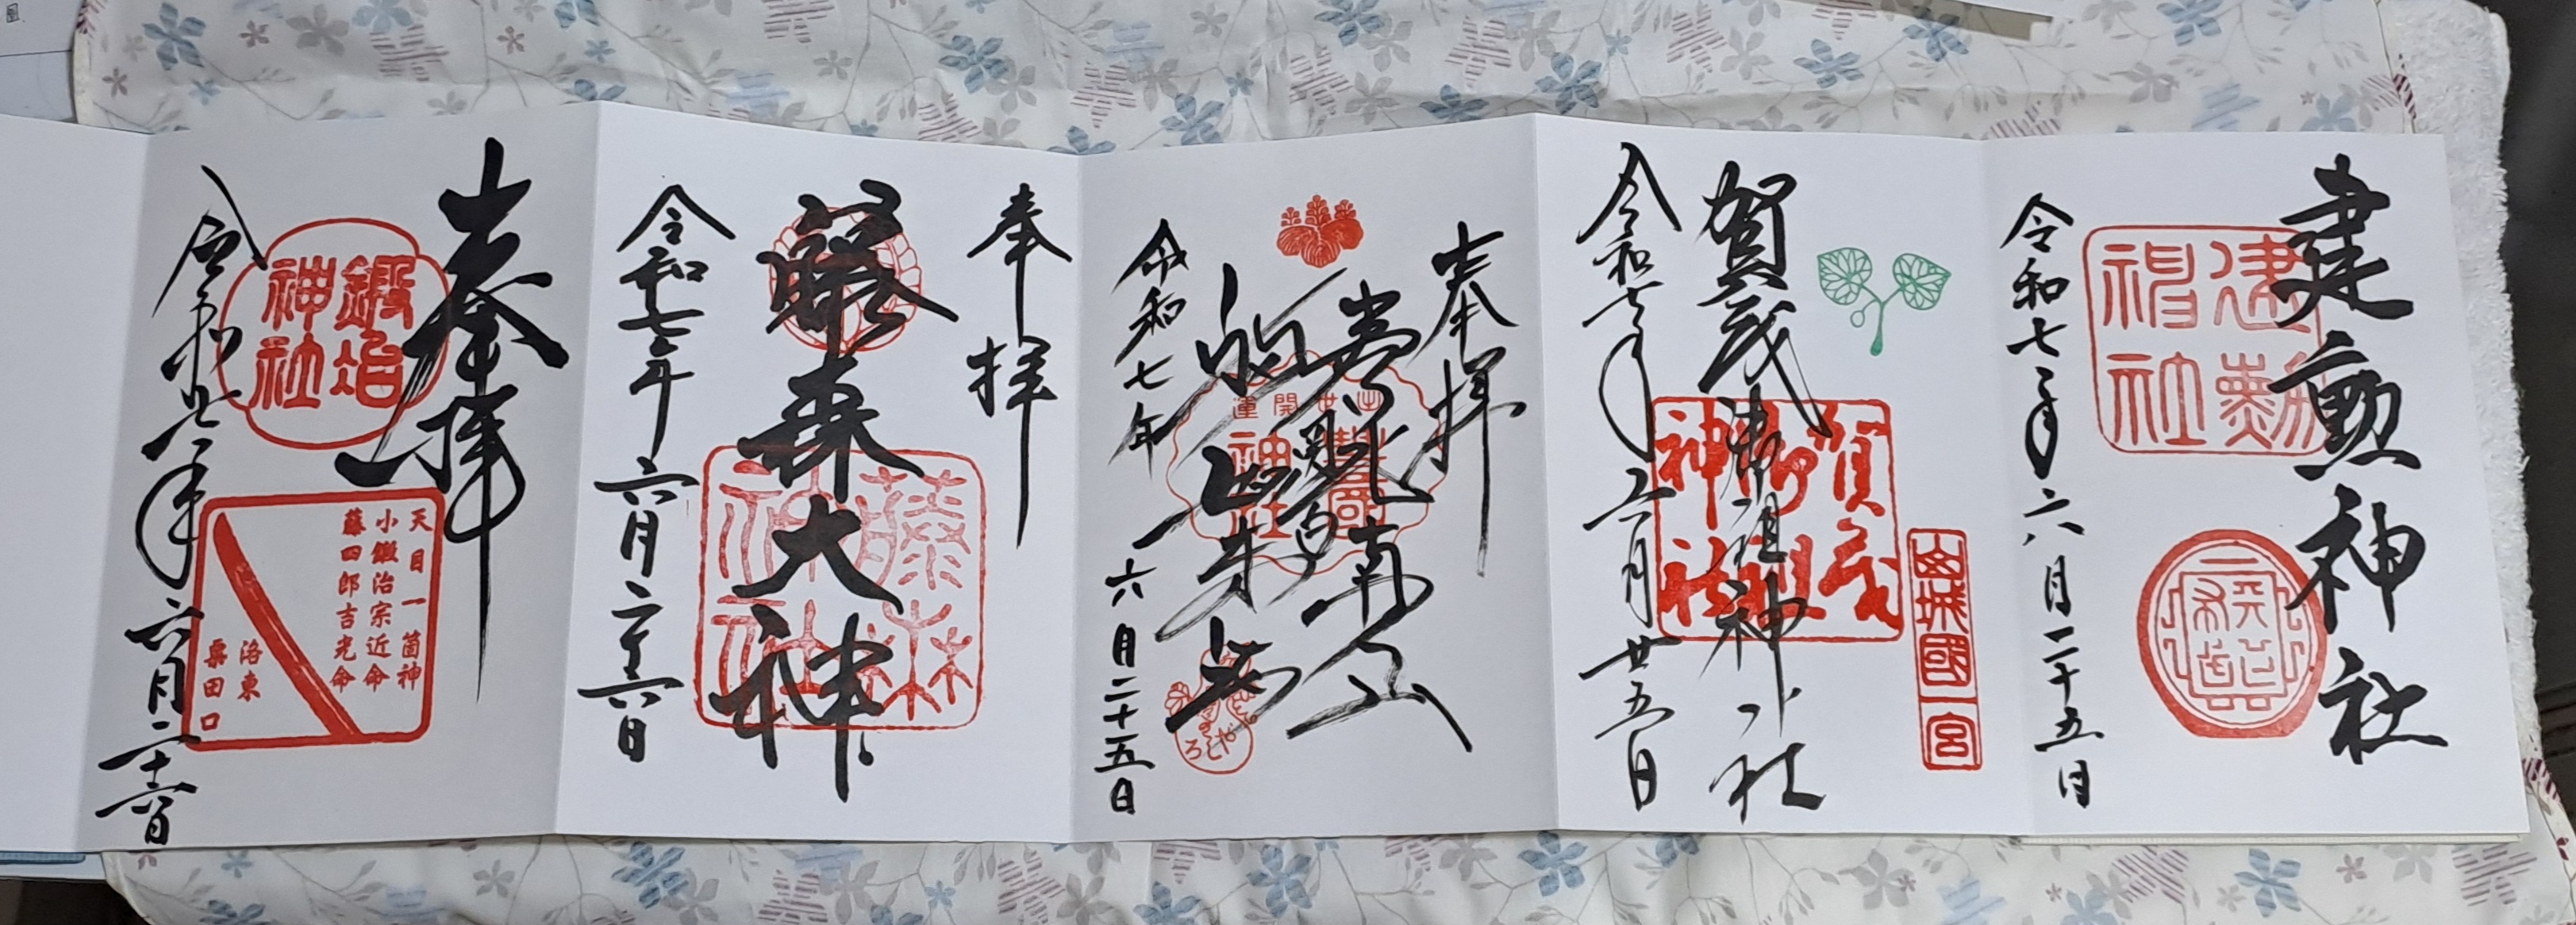 建勲神社
建勲
神社
天下布武
令和七年六月二十五日
山城國一宮
賀茂御祖神社
賀茂
御祖
神社
令和七年六月廿五日
奉拝
出世開運
豊國
神社
令和七年
六月二十五日
奉拝
藤森大神
藤森
神社
令和七年六月二十六日
奉拝
鍛冶
神社
天目一箇神
小鍛治宗近命
藤四郎吉光命
洛東
粟田口
令和七年六月二十六日